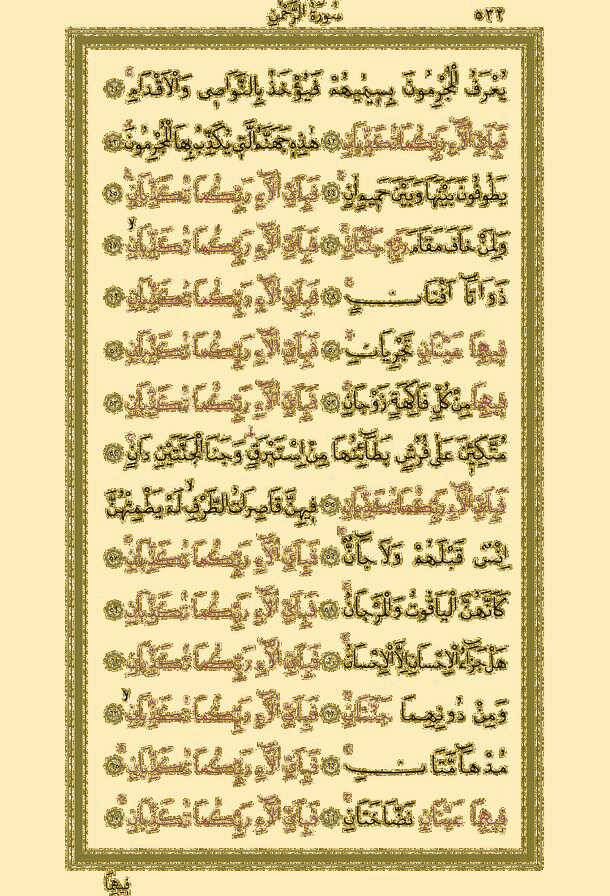 ٥٣٣ سورة الرحمن
يُعْرَفُ الْمُجْرِمُونَ بِسِيمٰيهُمْ فَيُؤْخَذُ بِالنَّوَاصِي وَالْاَقْدَامِ ﴿٤١﴾
فَبِاَيِّ اٰلَاءِ رَبِّكُمَا تُكَذِّبَانِ ﴿٤٢﴾ هٰذِهِ جَهَنَّمُ الَّتِي يُكَذِّبُ بِهَا الْمُجْرِمُونَ ﴿٤٣﴾
يَطُوفُونَ بَيْنَهَا وَبَيْنَ حَمِيمٍ اٰنٍ ﴿٤٤﴾ فَبِاَيِّ اٰلَاءِ رَبِّكُمَا تُكَذِّبَانِ ﴿٤٥﴾
وَلِمَنْ خَافَ مَقَامَ رَبِّهِ جَنَّتَانِ ﴿٤٦﴾ فَبِاَيِّ اٰلَاءِ رَبِّكُمَا تُكَذِّبَانِ ﴿٤٧﴾
ذَوَاتَا اَفْنَانٍ ﴿٤٨﴾ فَبِاَيِّ اٰلَاءِ رَبِّكُمَا تُكَذِّبَانِ ﴿٤٩﴾
فِيهِمَا عَيْنَانِ تَجْرِيَانِ ﴿٥٠﴾ فَبِاَيِّ اٰلَاءِ رَبِّكُمَا تُكَذِّبَانِ ﴿٥١﴾
فِيهِمَا مِنْ كُلِّ فَاكِهَةٍ زَوْجَانِ ﴿٥٢﴾ فَبِاَيِّ اٰلَاءِ رَبِّكُمَا تُكَذِّبَانِ ﴿٥٣﴾
مُتَّكِـِٔينَ عَلٰى فُرُشٍ بَطَائِنُهَا مِنْ اِسْتَبْرَقٍ وَجَنَا الْجَنَّتَيْنِ دَانٍ ﴿٥٤﴾
فَبِاَيِّ اٰلَاءِ رَبِّكُمَا تُكَذِّبَانِ ﴿٥٥﴾ فِيهِنَّ قَاصِرَاتُ الطَّرْفِ لَمْ يَطْمِثْهُنَّ
اِنْسٌ قَبْلَهُمْ وَلَا جَانٌّ ﴿٥٦﴾ فَبِاَيِّ اٰلَاءِ رَبِّكُمَا تُكَذِّبَانِ ﴿٥٧﴾
كَاَنَّهُنَّ الْيَاقُوتُ وَالْمَرْجَانُ ﴿٥٨﴾ فَبِاَيِّ اٰلَاءِ رَبِّكُمَا تُكَذِّبَانِ ﴿٥٩﴾
هَلْ جَزَاءُ الْاِحْسَانِ اِلَّا الْاِحْسَانُ ﴿٦٠﴾ فَبِاَيِّ اٰلَاءِ رَبِّكُمَا تُكَذِّبَانِ ﴿٦١﴾
وَمِنْ دُونِهِمَا جَنَّتَانِ ﴿٦٢﴾ فَبِاَيِّ اٰلَاءِ رَبِّكُمَا تُكَذِّبَانِ ﴿٦٣﴾
مُدْهَامَّتَانِ ﴿٦٤﴾ فَبِاَيِّ اٰلَاءِ رَبِّكُمَا تُكَذِّبَانِ ﴿٦٥﴾
فِيهِمَا عَيْنَانِ نَضَّاخَتَانِ ﴿٦٦﴾ فَبِاَيِّ اٰلَاءِ رَبِّكُمَا تُكَذِّبَانِ ﴿٦٧﴾
فِيهِمَا